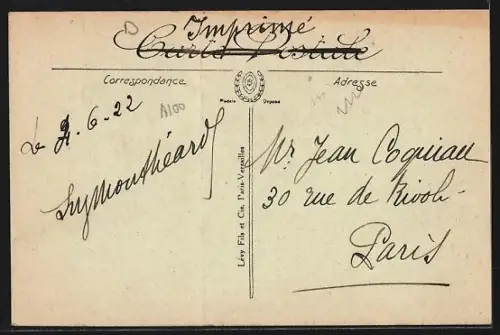 Imprimé
Carte Postale
Correspondance
Adresse
Modèle Déposé
Le 2-6-22
A100
Mr Jean Coquiau
30 rue de Rivoli
Paris
Lévy Fils et Cie, Paris-Versailles